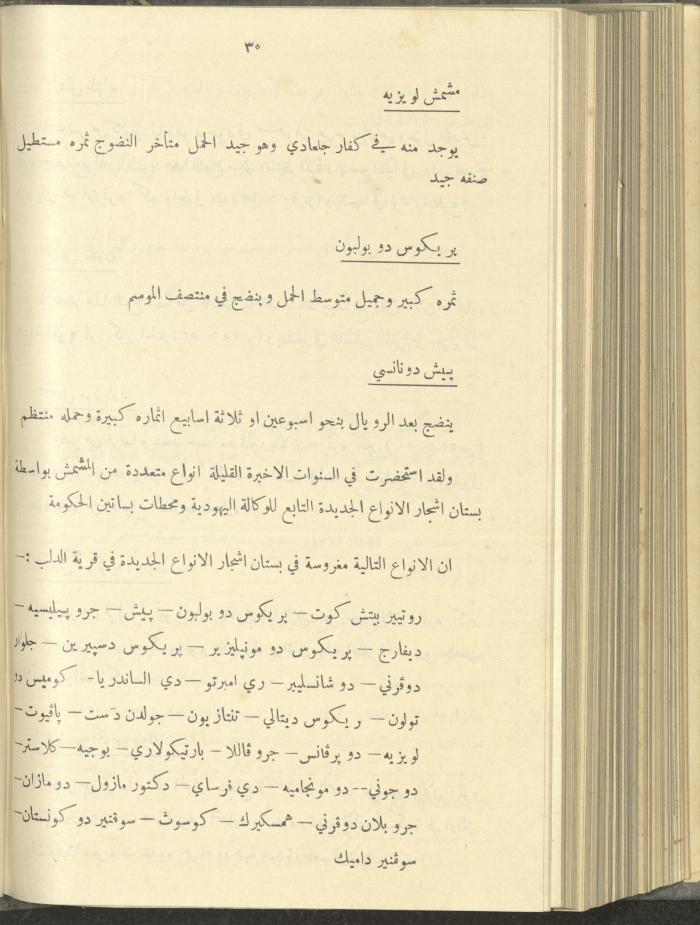 ٣٠
مشمش لويزيه
يوجد منه في كفار جلعادي وهو جيد الحمل متأخر النضوج ثمره مستطيل
صنفه جيد
پريكوس دو بولبون
ثمره كبير وجميل متوسط الحمل وينضج في منتصف الموسم
پيش دونانسي
ينضج بعد الرويال بنحو اسبوعين او ثلاثة اسابيع اثماره كبيرة وحمله منتظم
ولقد استحضرت في السنوات الاخيرة القليلة انواع متعددة من المشمش بواسطة
بستان اشجار الانواع الجديدة التابع للوكالة اليهودية ومحطات بساتين الحكومة
ان الانواع التالية مغروسة في بستان اشجار الانواع الجديدة في قرية الدلب :—
روتيير بيتش كوت — پريكوس دو بولبون — پيش — جرو پيليسيه —
ديفارج — پريكوس دو مونپليزير — پريكوس دسپيرين — جلوار
دوڤرني — دو شانسليير — ري امبرتو — دي الساندريا - كوميس دو
تولون — ريكوس ديتالي — تنتازيون — جولدن دست — پاڤيوت —
لويزيه — دو پرڤانس — جرو ڤاللا — بارتيكولاري — بوجيه — كلاستر —
دو جوني -- دو مونجاميه — دي ڤرساي — دكتور مازول — دو مازان —
جرو بلان دوڤرني — همسكيرك — كوسوث — سوڤنير دو كونستان —
سوڤنير داميك